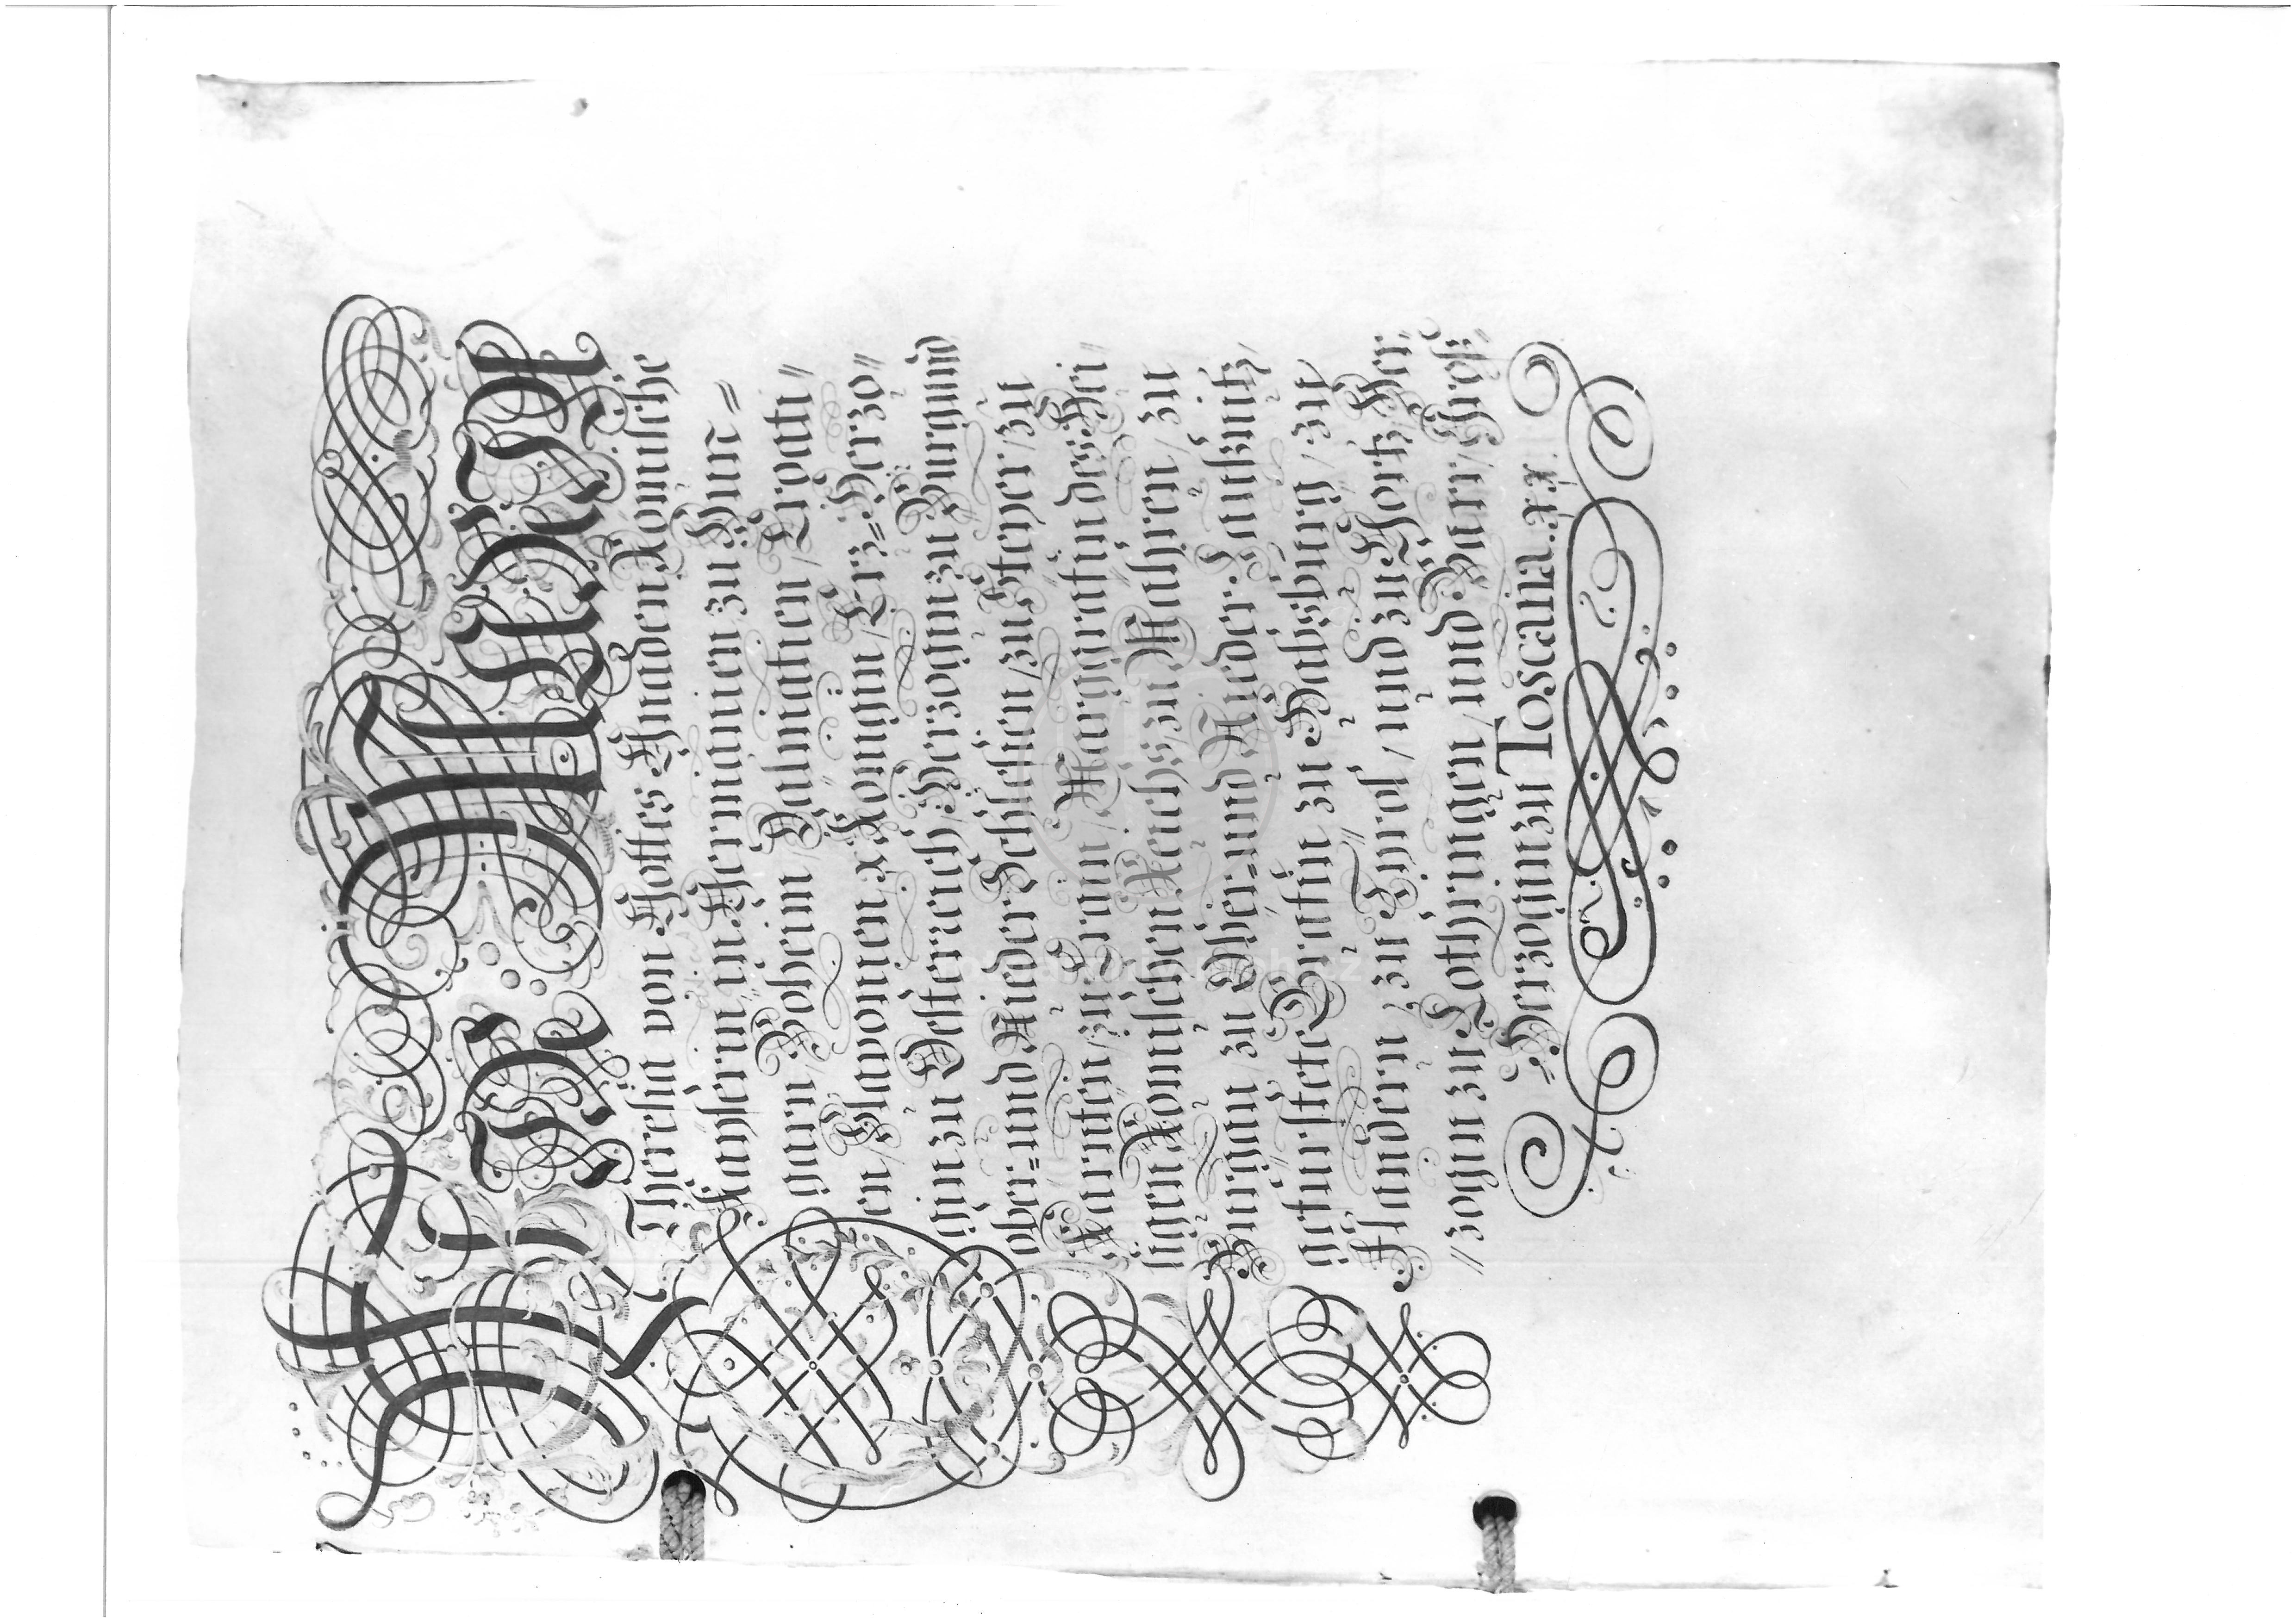 WIR MARIA
Theresia von Gottes Gnaden Römische
Kayserin in Germanien zu Hun=
garn / Böheim / Dalmatien / Croati=
en / Slavonien x Königin / Erz=Herzo=
gin zu Oesterreich / Herzogin zu Burgund
ober=und Nieder Schlesien / zu Steyer / zu
Kärnten / zu Crain / Marggräfin des Hei=
ligen Römischen Reichs zu Mähren / zu
Burgau / zu Ober=und Nieder-Laußnitz /
gefürstete Gräfin zu Habsburg / zu
Flandern / zu Tirol / und zu Görtz / Her=
=zogin zu Lothringen / und Barr / Groß=
=Herzogin zu Toscana xx